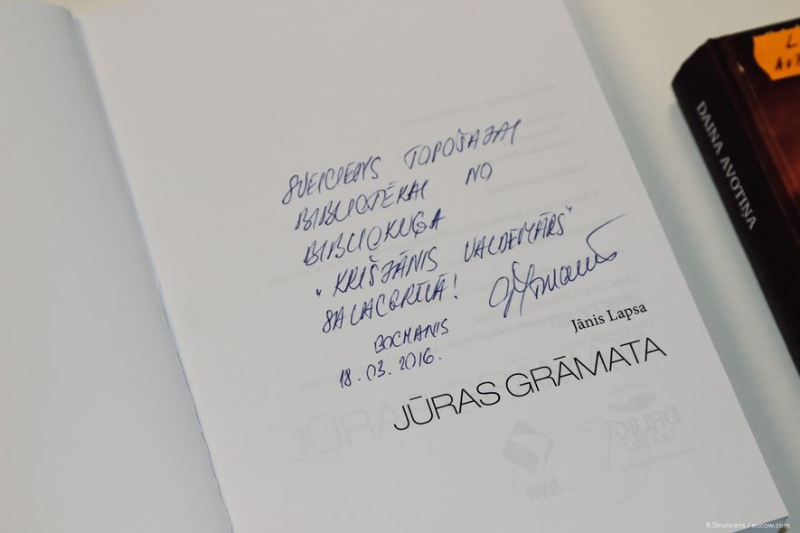 SVEICIENS TOPOŠAJAI
BIBLIOTĒKAI NO
BIBLIOKUĢA
"KRIŠJĀNIS VALDEMĀRS"
SALACGRĪVĀ!
BOCMANIS
18.03.2016.
Jānis Lapsa
JŪRAS GRĀMATA
DAINA AVOTIŅA
R.Struncens / eucow.com